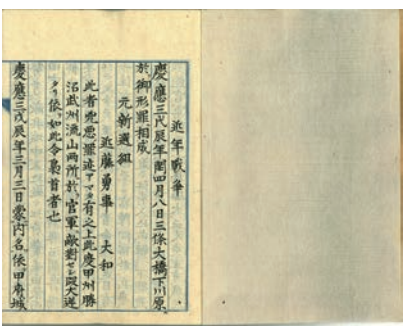 近年戦争
慶應三戊辰年閏四月八日三條大橋下川原、
於御形罪相成
元新選組
近藤勇事　大和
此者兇悪罪迹アマタ有之上此慶甲州勝
沼武州流山両所於、官軍敵對セシ段大逆
タリ依、如此令梟首者也
慶應三戊辰年三月三日蒙内名、依、甲府城